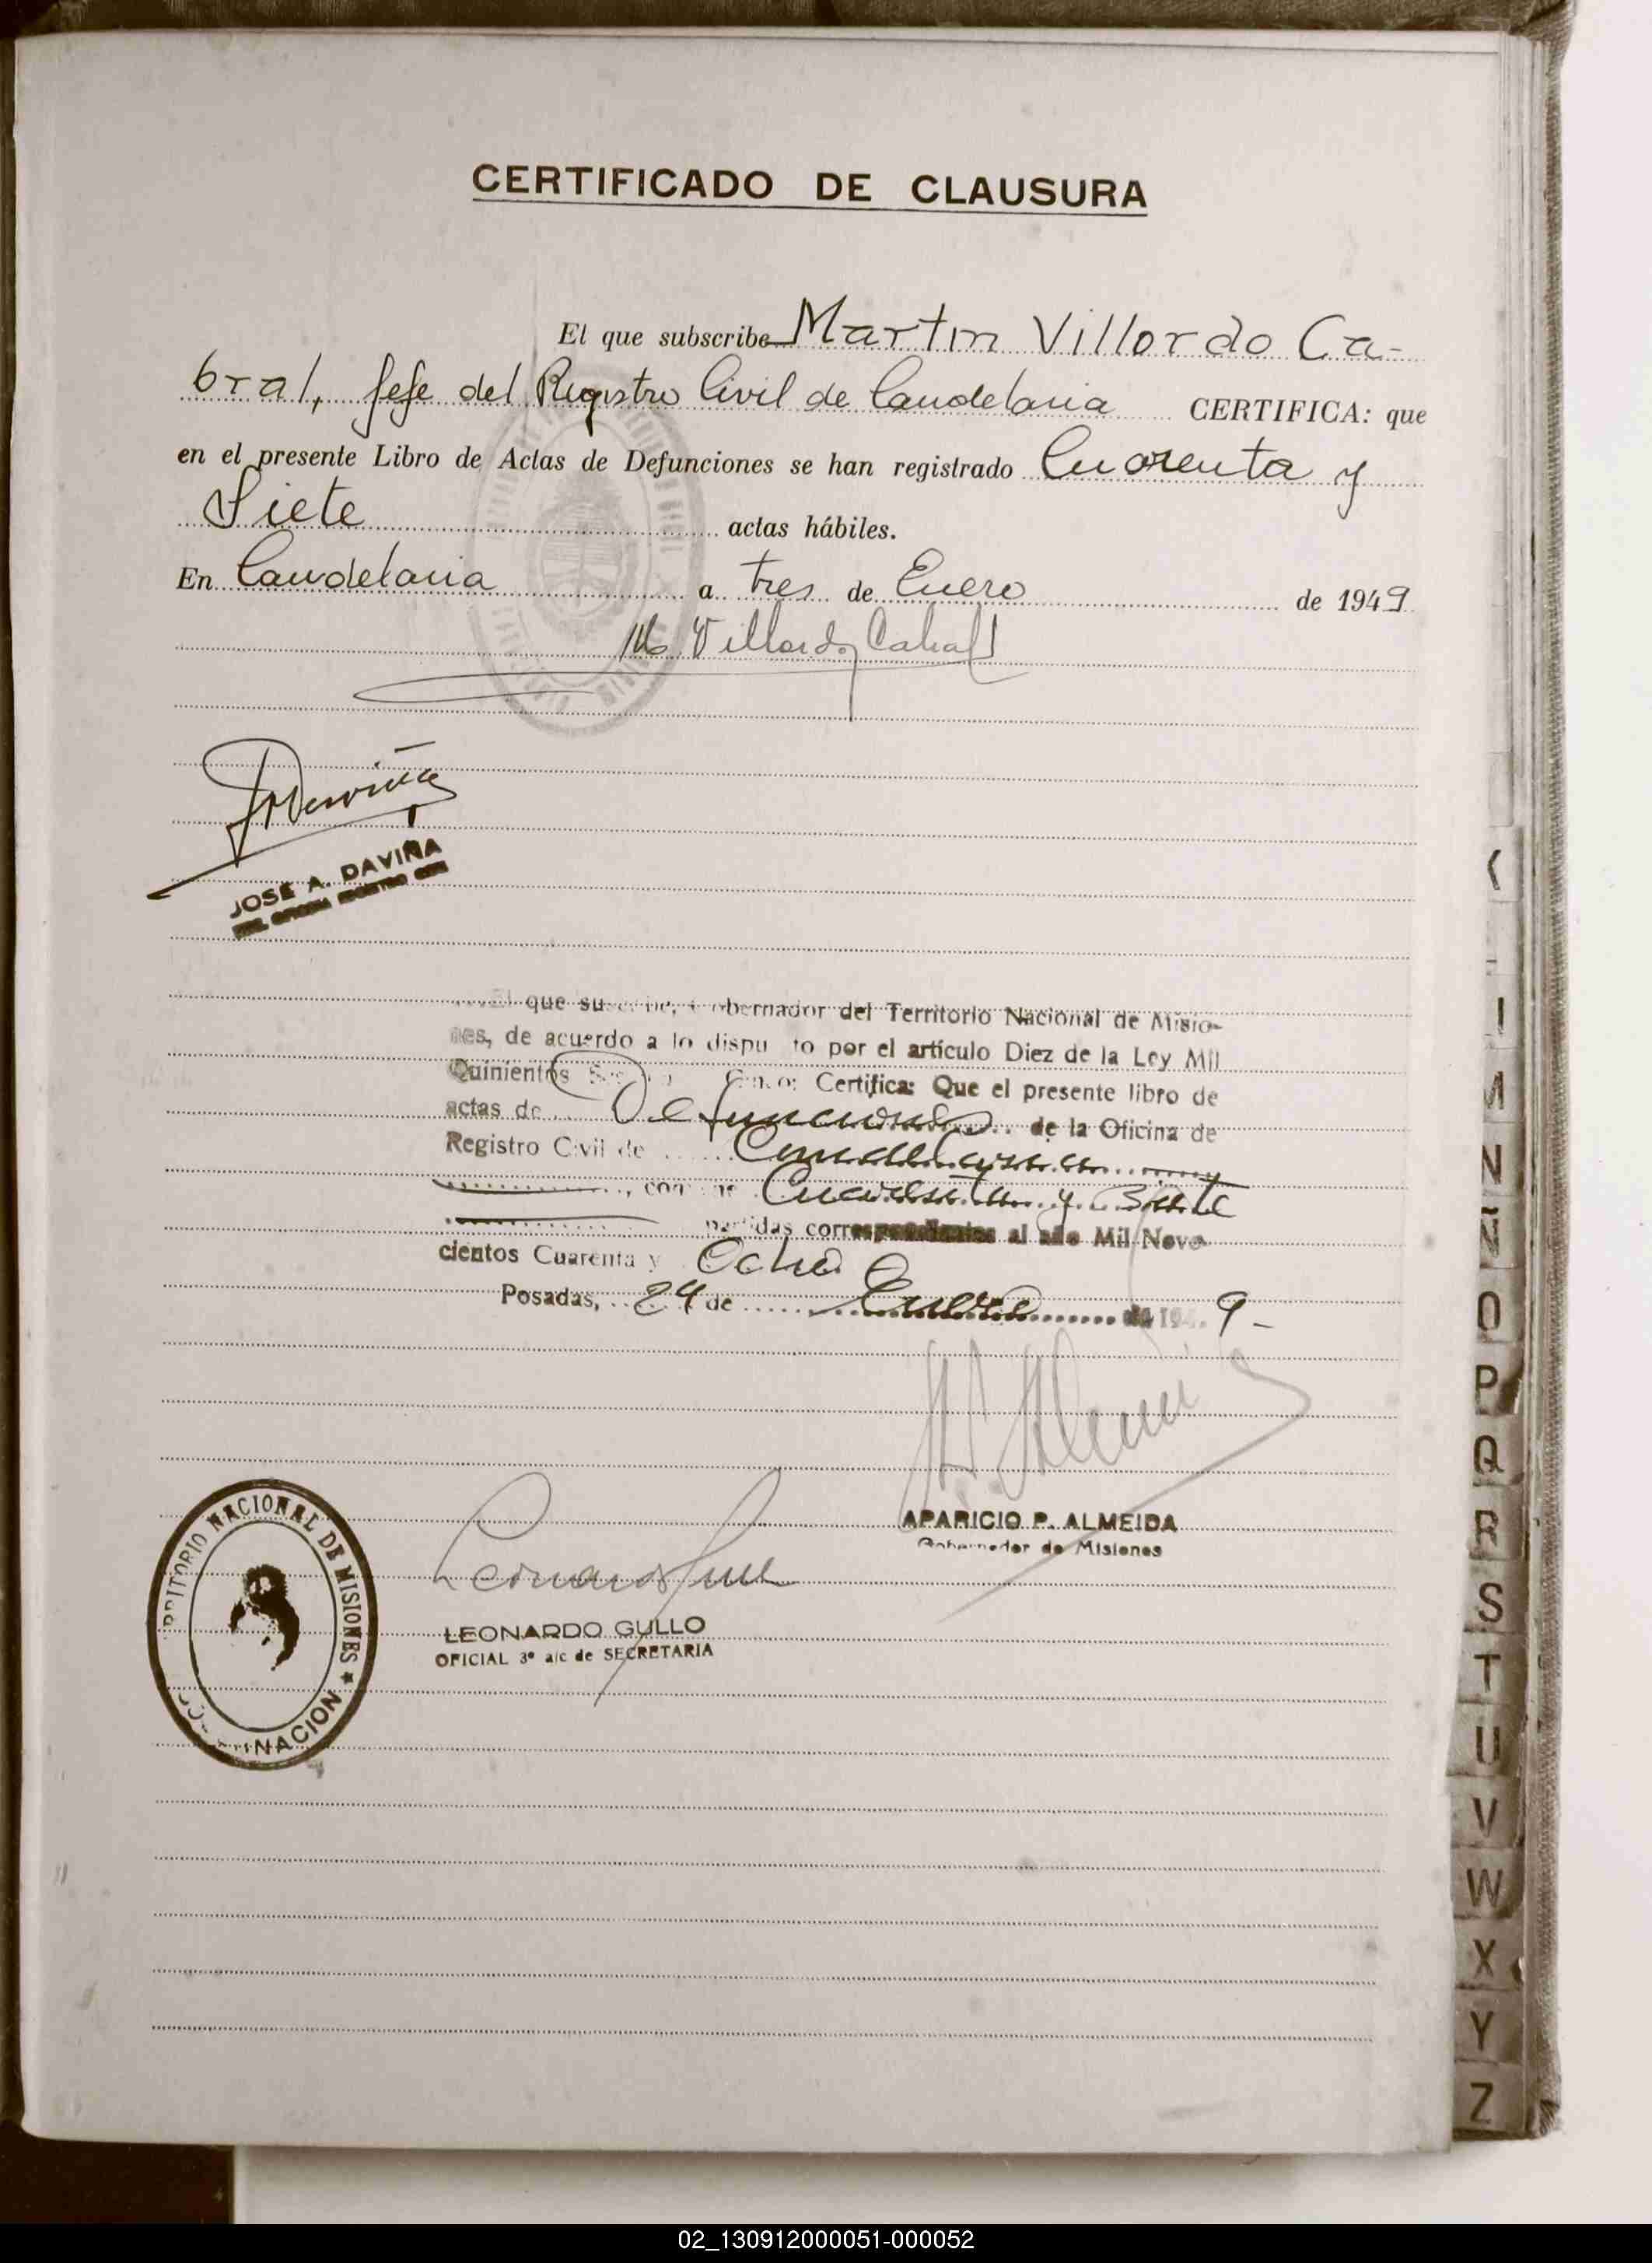 CERTIFICADO DE CLAUSURA
El que subscribe Martin Villordo Ca-
bral, Jefe del Registro Civil de Candelaria CERTIFICA: que
en el presente Libro de Actas de Defunciones se han registrado Cuarenta y
Siete actas hábiles.
En Candelaria a tres de Enero de 1949
M. Villordo Cabral
JOSÉ A. DAVIÑA
El que suscribe, Gobernador del Territorio Nacional de Misio-
nes, de acuerdo a lo dispu to por el artículo Diez de la Ley Mil
Quinientos Certifica: Que el presente libro de
actas de Defunciones de la Oficina de
Registro Civil de Candelaria
Cuarenta y Siete
partidas correspondientes al año Mil Nove
cientos Cuarenta y Ocho
Posadas, 24 de Enero de 194 9-
APARICIO P. ALMEIDA
Gobernador de Misiones
LEONARDO GULLO
OFICIAL 3º a/c de SECRETARIA
NACIONAL DE MISIONES
I
M
N
Ñ
O
P
Q
R
S
T
U
V
W
X
Y
Z
02_130912000051-000052